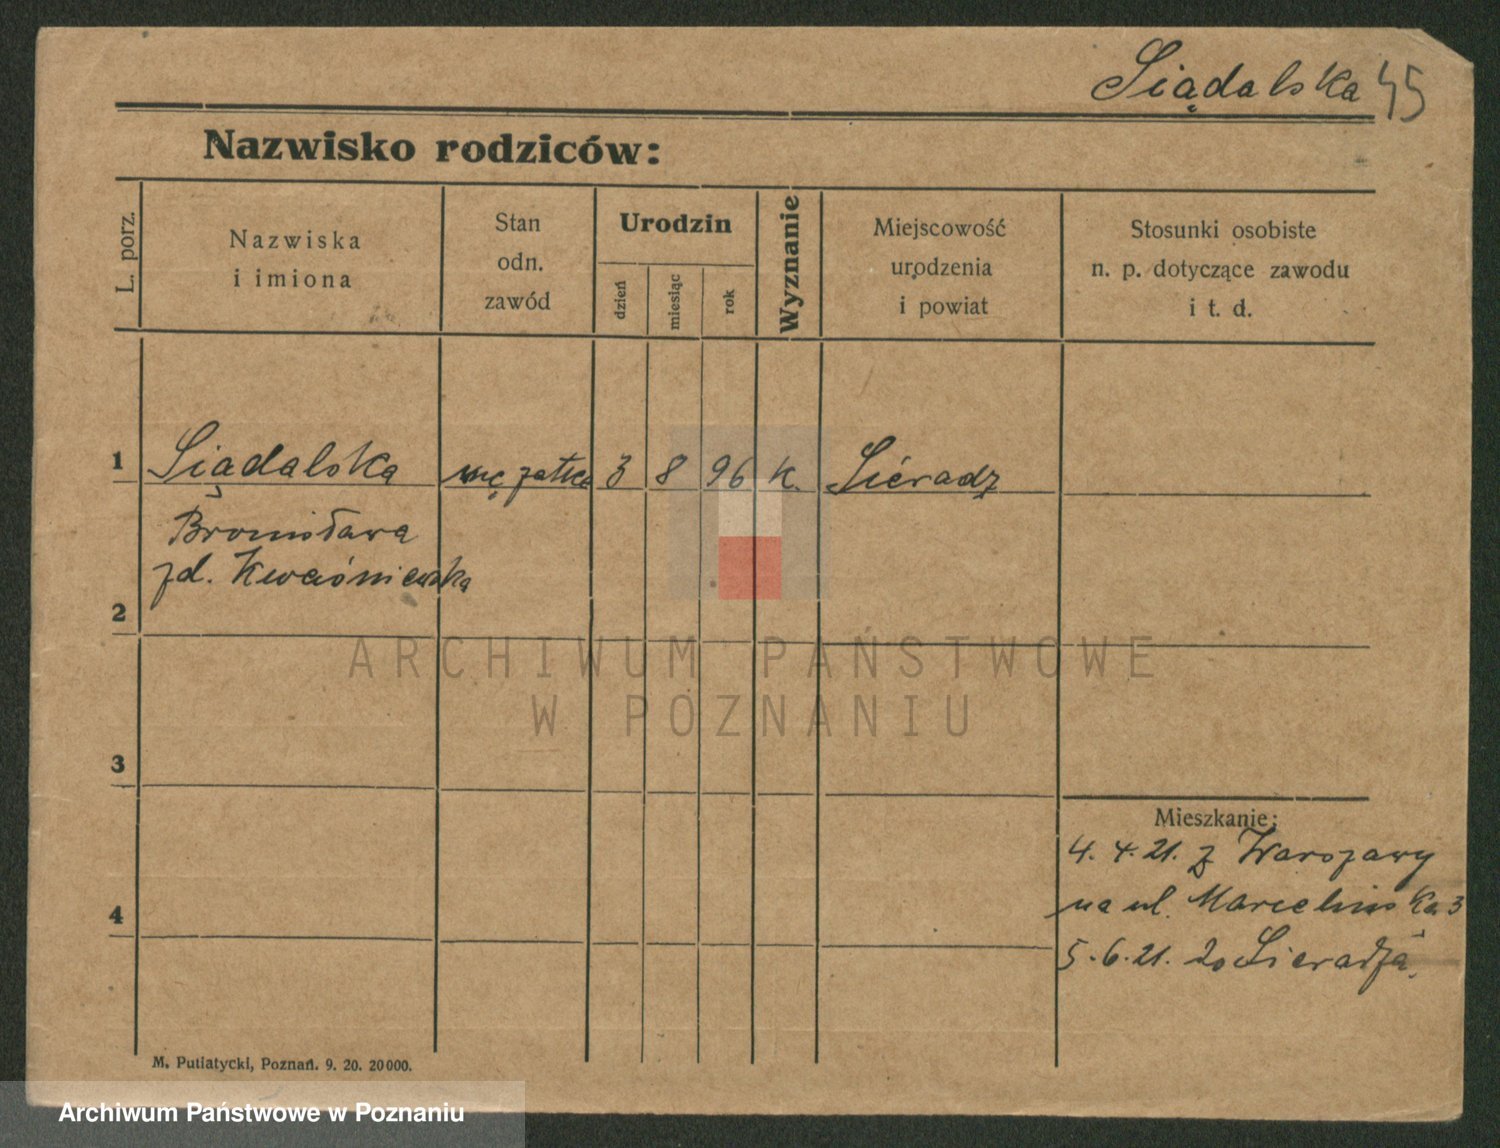 Siądalska 45
Nazwisko rodziców:
L. porz.
Nazwiska
i imiona
Stan
odn.
zawód
Urodzin
dzień
miesiąc
rok
Wyznanie
Miejscowość
urodzenia
i powiat
Stosunki osobiste
n. p. dotyczące zawodu
i t. d.
1 Siądalska mężatka 3 8 96 k. Sieradz
Bronisława
zd. Kwaśniewska
2
ARCHIWUM PAŃSTWOWE
W POZNANIU
3
Mieszkanie:
4. 4. 21. z Warszawy
na ul. Marcelińska 3
4
5. 6. 21. do Sieradza.
M. Putiatycki, Poznań. 9. 20. 20000.
Archiwum Państwowe w Poznaniu